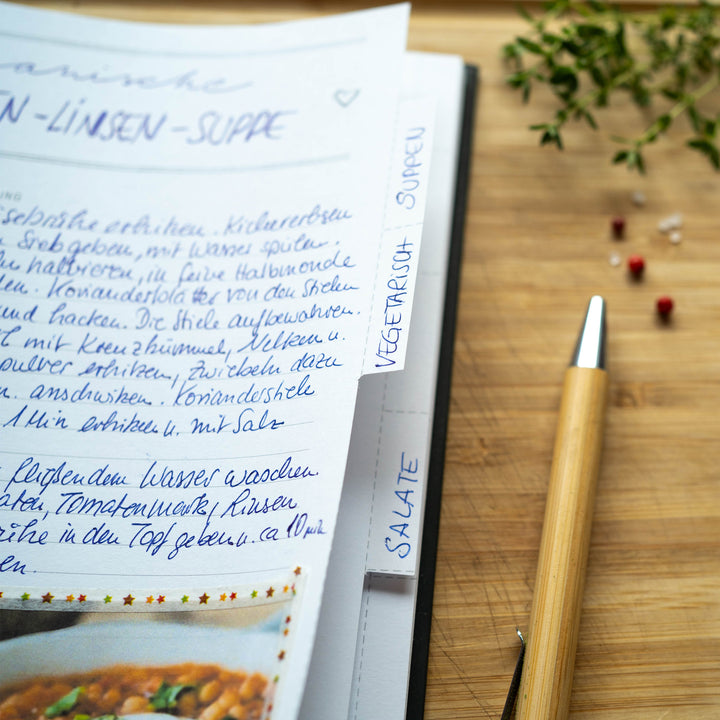 anische
EN-LINSEN-SUPPE
UNG
sebrühe erhitzen. Kichererbsen
Sieb geben, mit Wasser spülen.
halbieren, in feine Halbmonde
den. Korianderblätter von den Stielen
und hacken. Die Stiele aufbewahren.
mit Kreuzkümmel, Nelken u.
pulver erhitzen, Zwiebeln dazu
n. anschwitzen. Korianderstiele
1 Min erhitzen u. mit Salz
fließendem Wasser waschen
aten, Tomatenmark, Linsen
rühe in den Topf geben u. ca 10 min
en.
SUPPEN
VEGETARISCH
SALATE